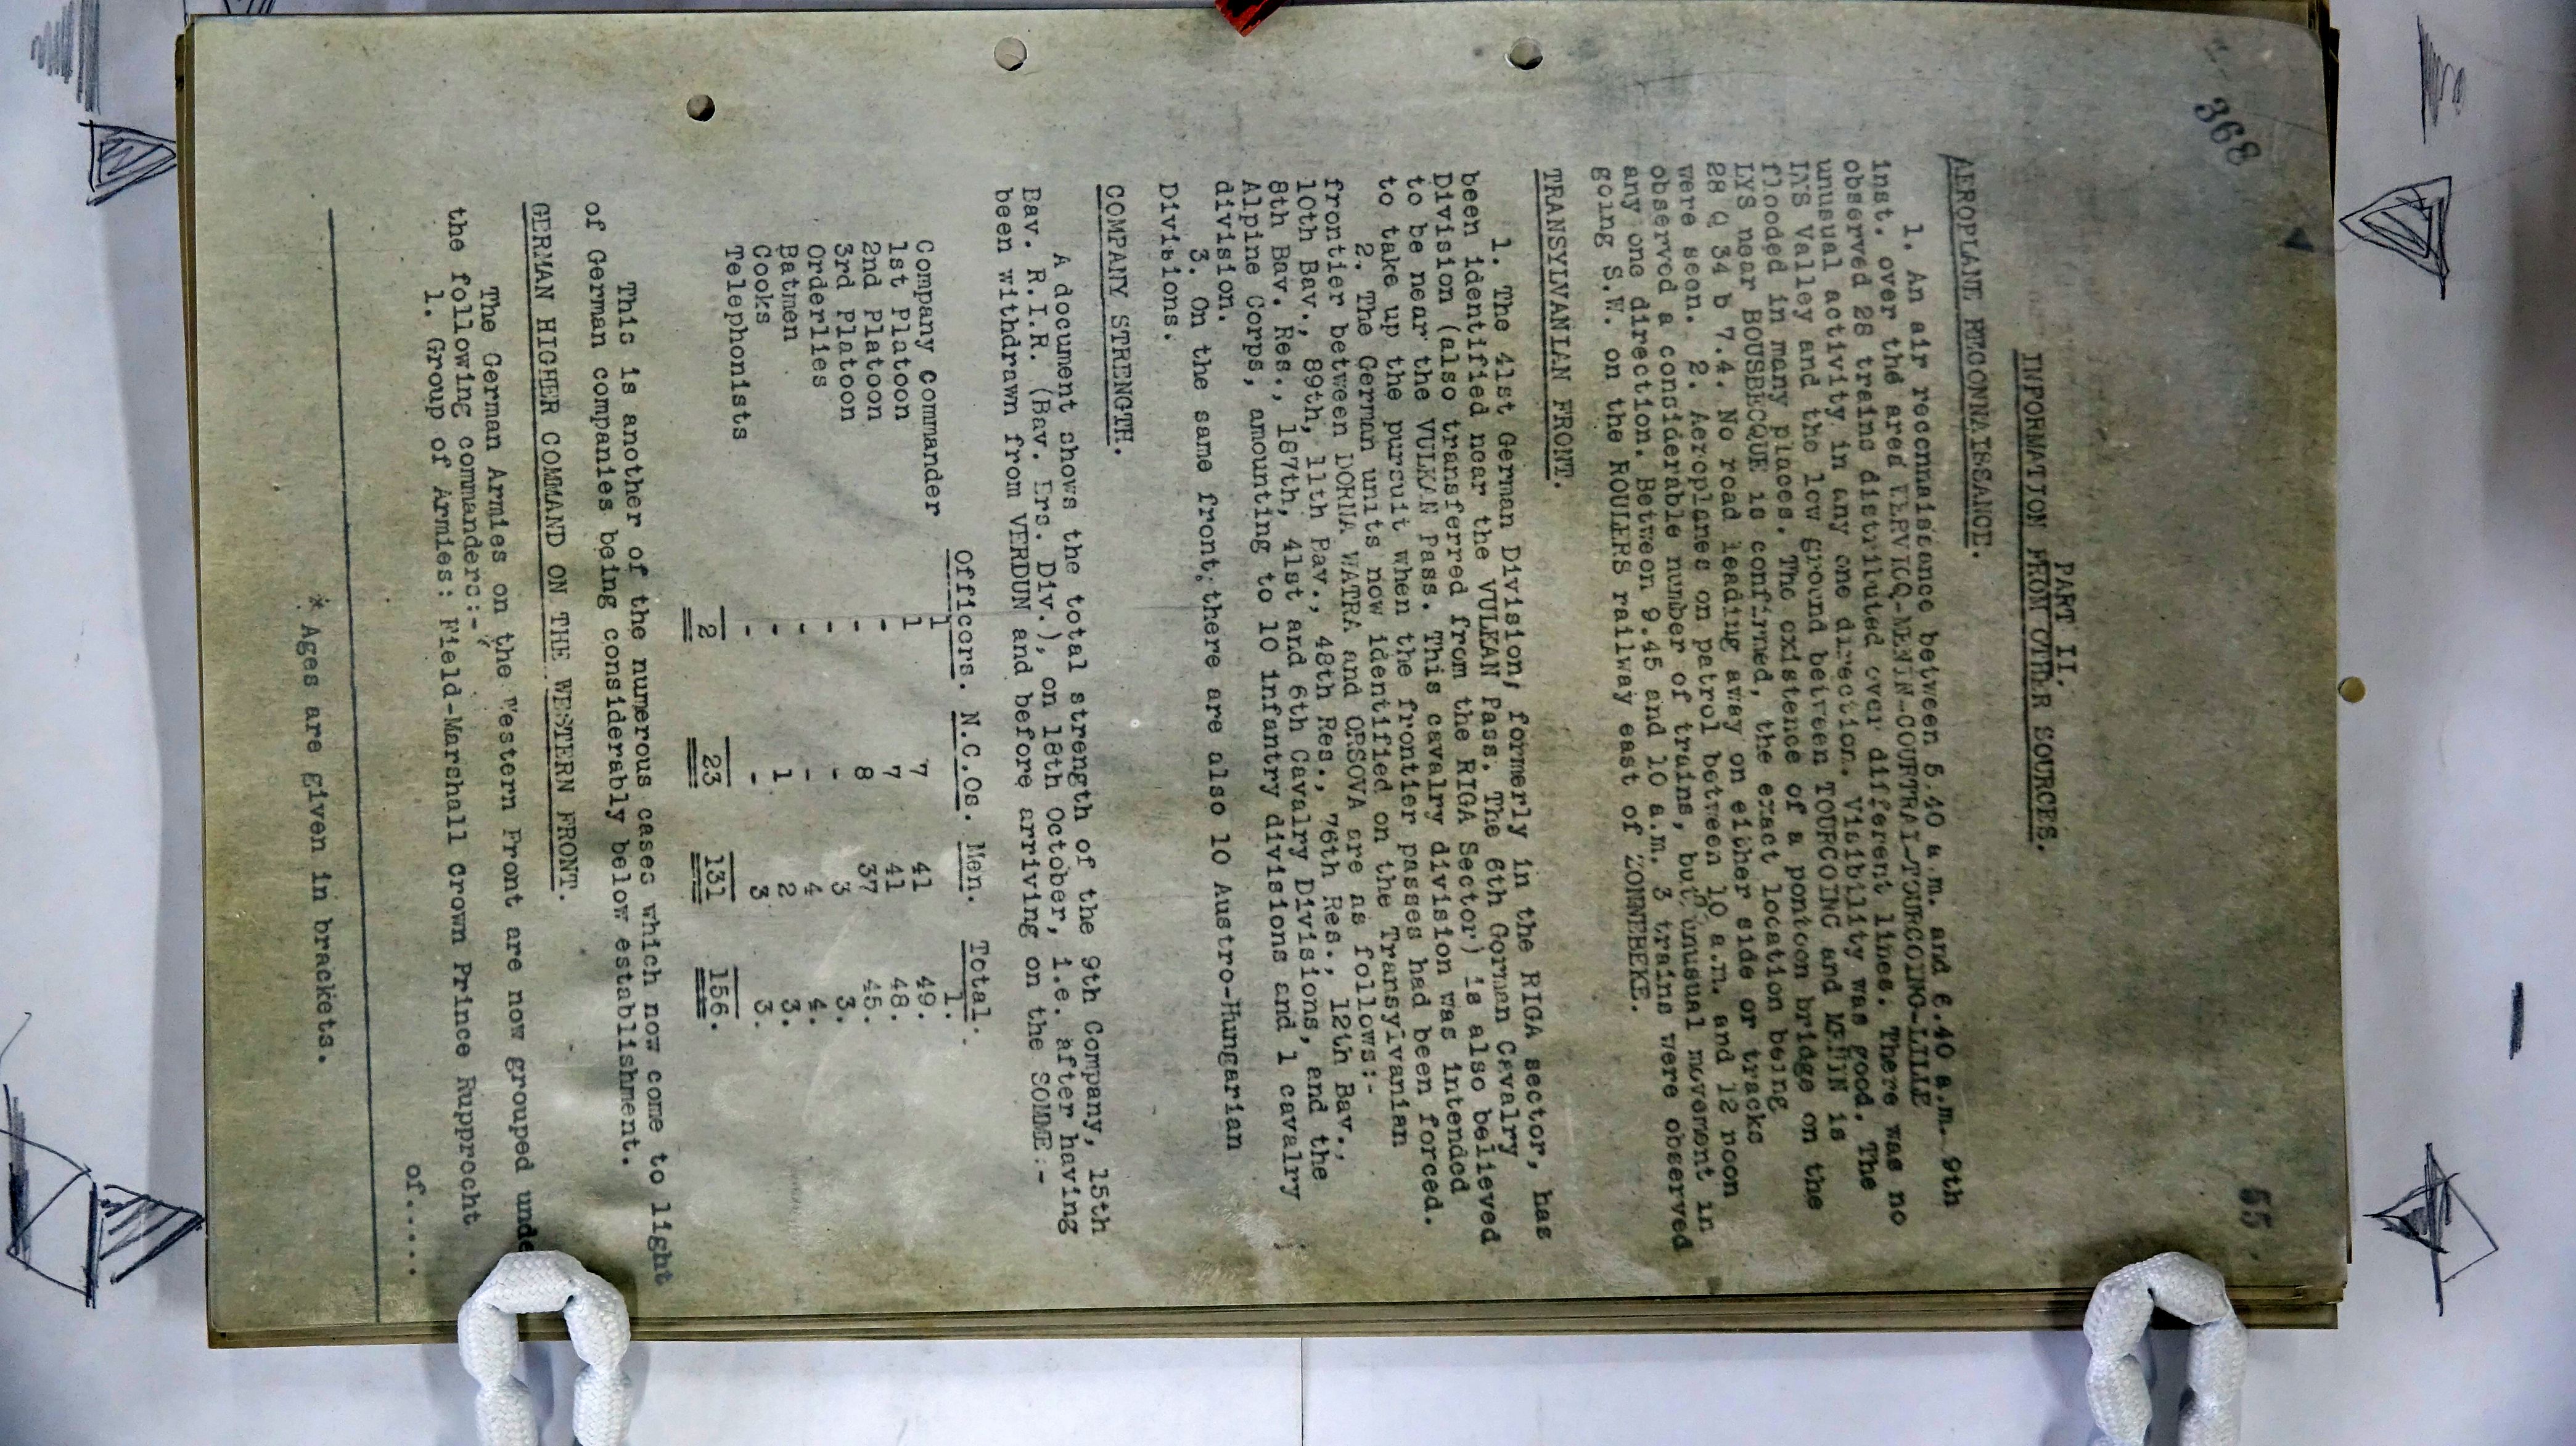 368
55.
PART II.
INFORMATION FROM OTHER SOURCES.
AEROPLANE RECONNAISSANCE.
1. An air reconnaissance between 5.40 a.m. and 6.40 a.m. 9th
inst. over the area WERVICQ-MENIN-COURTRAI-TOURCOING-LILLE
observed 28 trains distributed over different lines. There was no
unusual activity in any one direction. Visibility was good. The
LYS Valley and the low ground between TOURCOING and MENIN is
flooded in many places. The existence of a pontoon bridge on the
LYS near BOUSBECQUE is confirmed, the exact location being
28 Q 34 b 7.4. No road leading away on either side or tracks
were seen. 2. Aeroplanes on patrol between 10 a.m. and 12 noon
observed a considerable number of trains, but unusual movement in
any one direction. Between 9.45 and 10 a.m. 3 trains were observed
going S.W. on the ROULERS railway east of ZONNEBEKE.
TRANSYLVANIAN FRONT.
1. The 41st German Division, formerly in the RIGA sector, has
been identified near the VULKAN Pass. The 6th German Cavalry
Division (also transferred from the RIGA Sector) is also believed
to be near the VULKAN Pass. This cavalry division was intended
to take up the pursuit when the frontier passes had been forced.
2. The German units now identified on the Transylvanian
frontier between DORNA WATRA and ORSOVA are as follows:-
10th Bav., 89th, 11th Bav., 48th Res., 76th Res., 12th Bav.,
8th Bav. Res., 187th, 41st and 6th Cavalry Divisions, and the
Alpine Corps, amounting to 10 infantry divisions and 1 cavalry
division.
3. On the same front, there are also 10 Austro-Hungarian
Divisions.
COMPANY STRENGTH.
A document shows the total strength of the 9th Company, 15th
Bav. R.I.R. (Bav. Ers. Div.), on 18th October, i.e. after having
been withdrawn from VERDUN and before arriving on the SOMME:-
Officers. N.C.Os. Men. Total.
Company commander 1 1.
1st Platoon 1 7 41 49.
2nd Platoon - 7 41 48.
3rd Platoon - 8 37 45.
Orderlies - - 3 3.
Batmen - - 4 4.
Cooks - 1 2 3.
Telephonists - - 3 3.
2 23 131 156.
This is another of the numerous cases which now come to light
of German companies being considerably below establishment.
GERMAN HIGHER COMMAND ON THE WESTERN FRONT.
The German Armies on the Western Front are now grouped unde
the following commanders:-*
1. Group of Armies: Field-Marshall Crown Prince Rupprocht
of.....
* Ages are given in brackets.